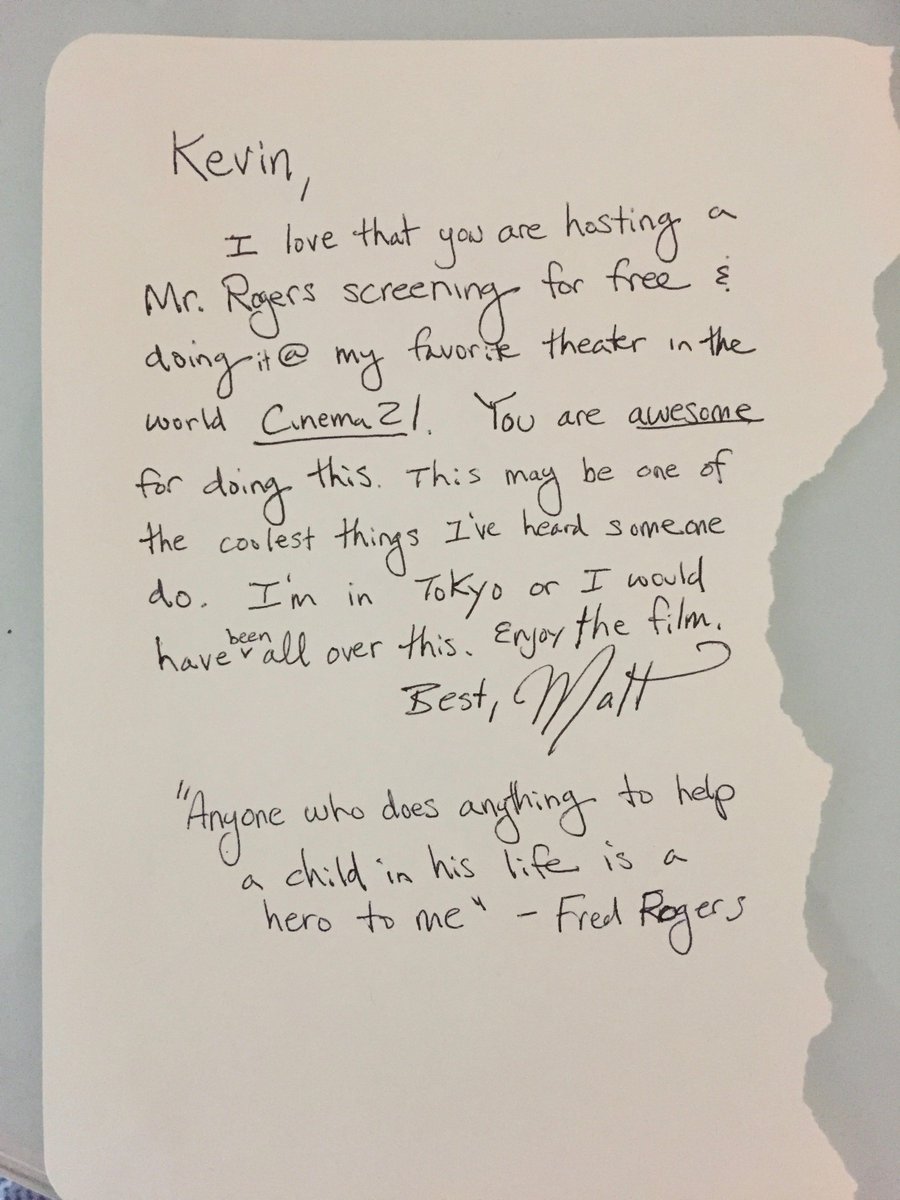 Kevin,
I love that you are hosting a
Mr. Rogers screening for free &
doing it @ my favorite theater in the
world Cinema 21. You are awesome
for doing this. This may be one of
the coolest things I've heard someone
do. I'm in Tokyo or I would
have been all over this. Enjoy the film.
Best, Matt
"Anyone who does anything to help
a child in his life is a
hero to me" - Fred Rogers